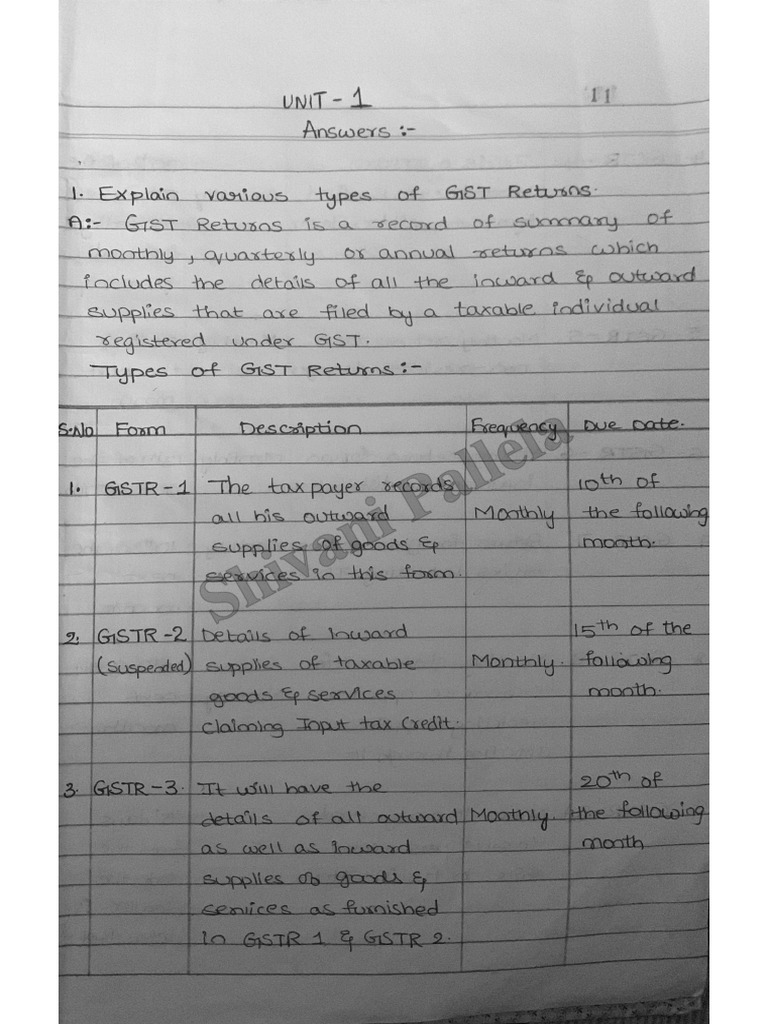 UNIT - 1
11
Answers :-
1. Explain various types of GST Returns.
A:- GST Returns is a record of summary of
monthly, quarterly or annual returns which
includes the details of all the inward & outward
supplies that are filed by a taxable individual
registered under GST.
Types of GST Returns :-
S.No Form Description Frequency Due Date.
1. GSTR - 1 The tax payer records 10th of
all his outward Monthly the following
supplies of goods & month.
services in this form.
2. GSTR - 2 Details of Inward 15th of the
(Suspended) supplies of taxable Monthly. following
goods & services month.
claiming Input tax Credit.
3. GSTR - 3. It will have the 20th of
details of all outward Monthly. the following
as well as inward month
supplies of goods &
services as furnished
in GSTR 1 & GSTR 2.
Shivani Pallela